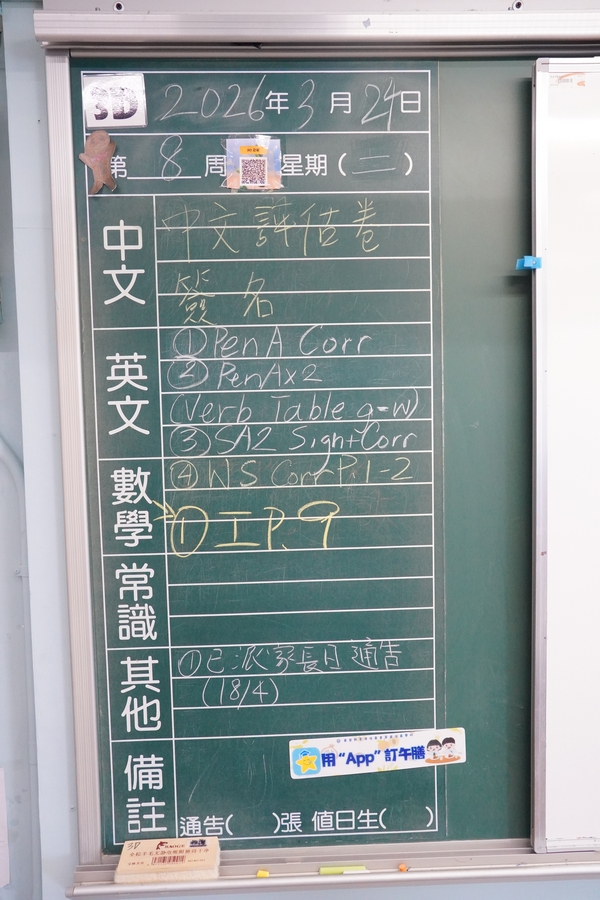 3D 2026年3月24日
第8周 星期(二)
中文
中文評估卷
簽名
英文
①Pen A Corr
②PenA×2
(Verb Table g-w)
③SA2 Sign+Corr
④WS Corr P.1-2
數學
①工P.9
常識
其他
①已派家長日通告
(18/4)
備註
用“App”訂午膳
通告( )張 值日生( )
3D